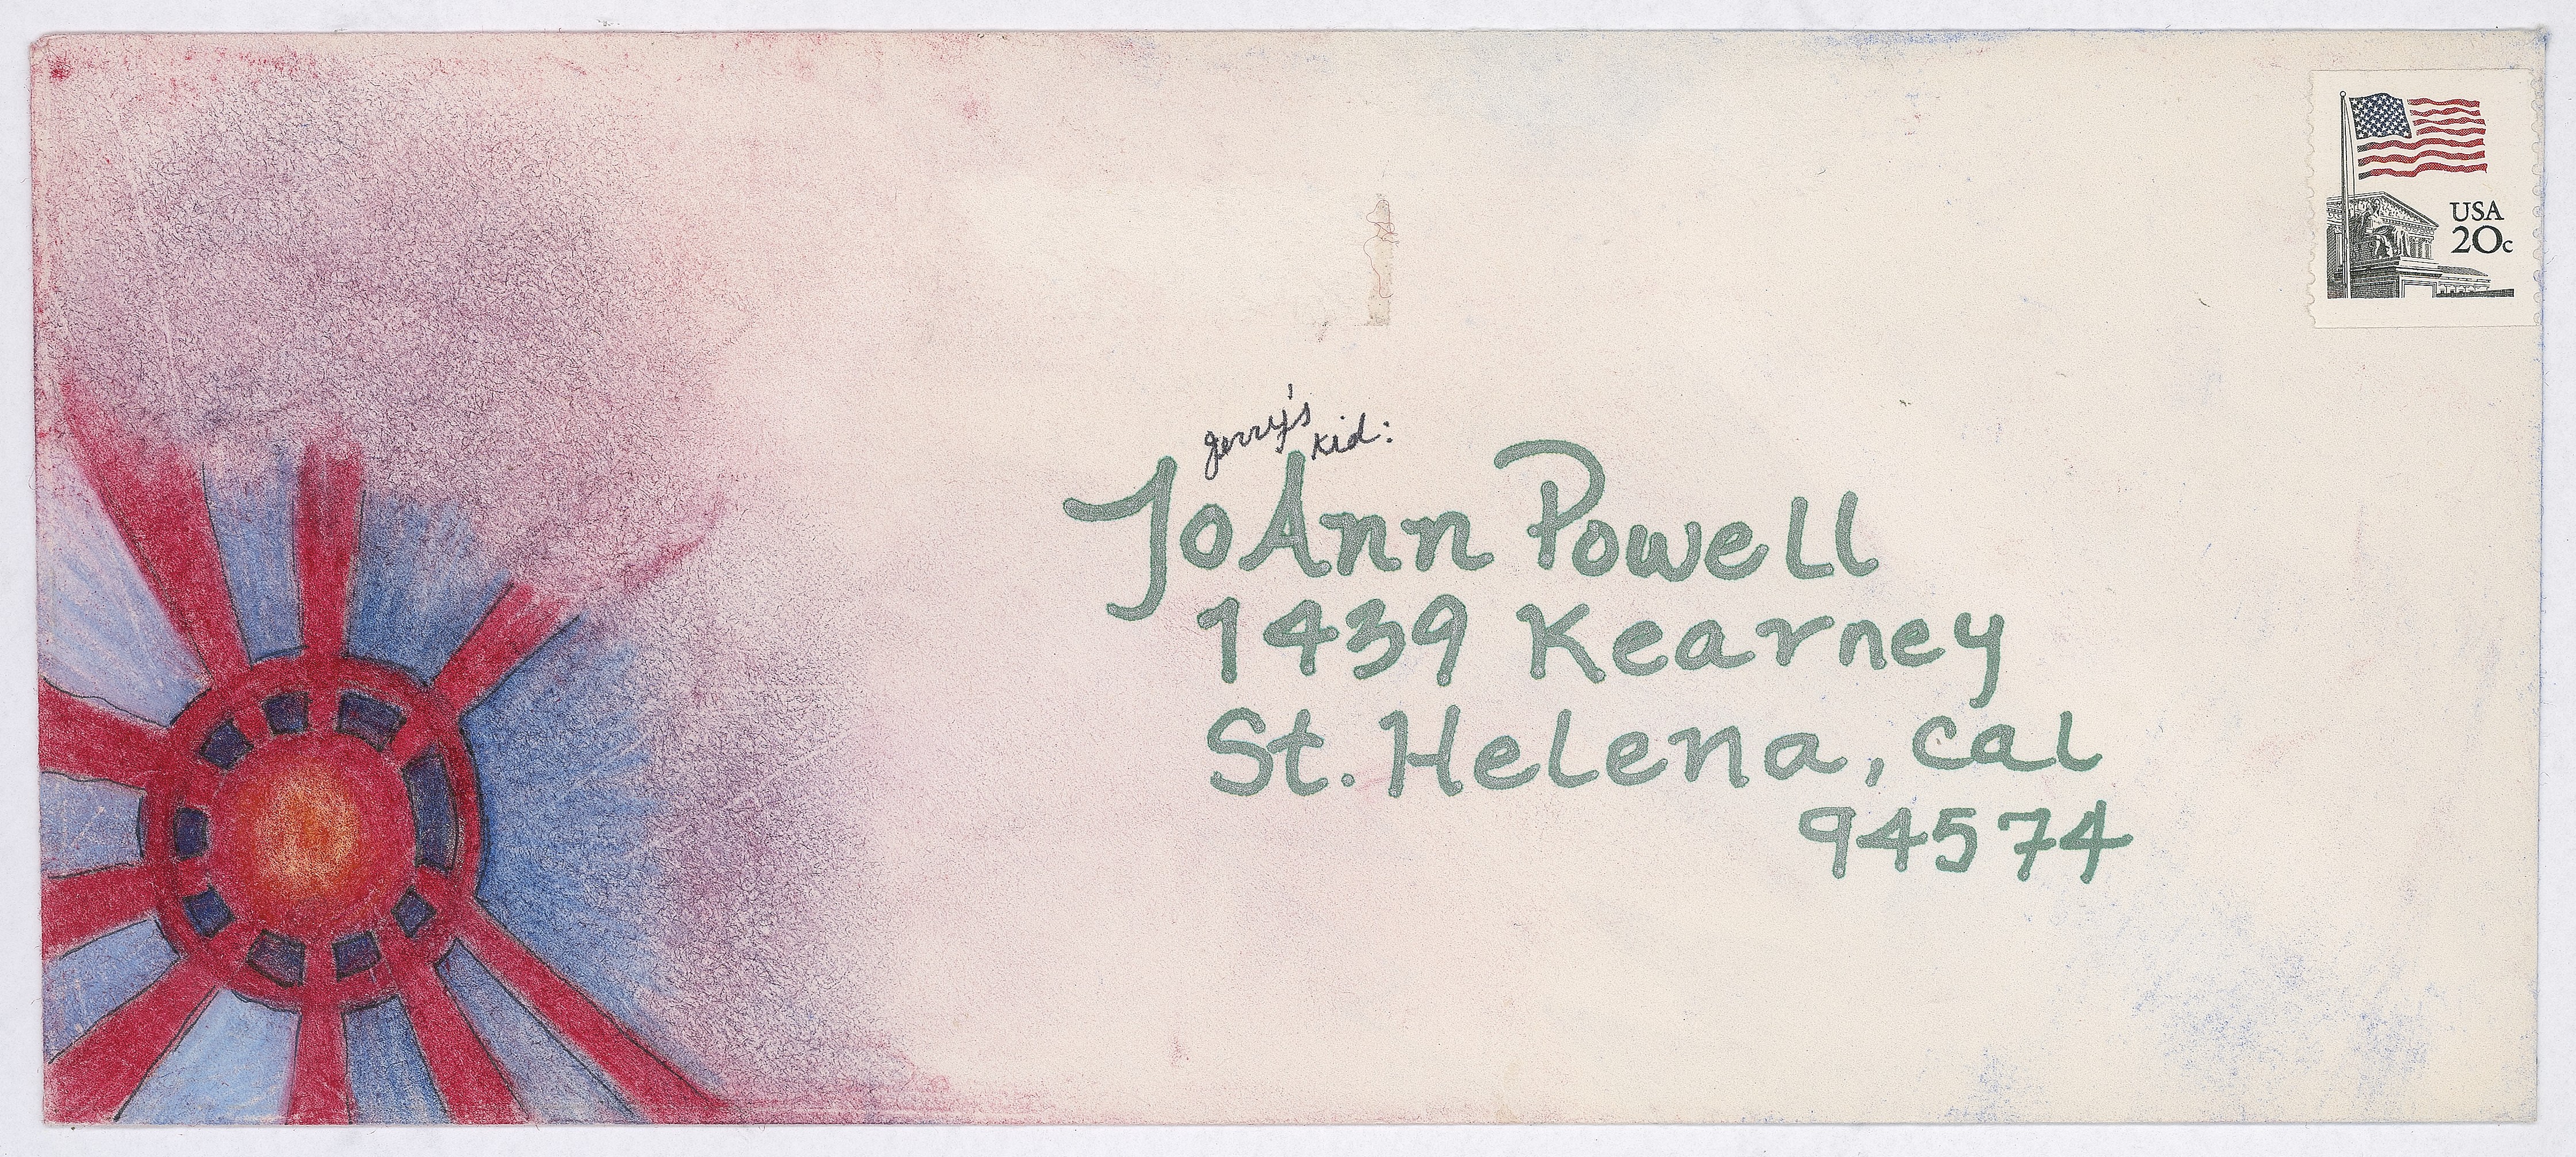 USA
20c
Jerry's kid:
JoAnn Powell
1439 Kearney
St. Helena, Cal
94574